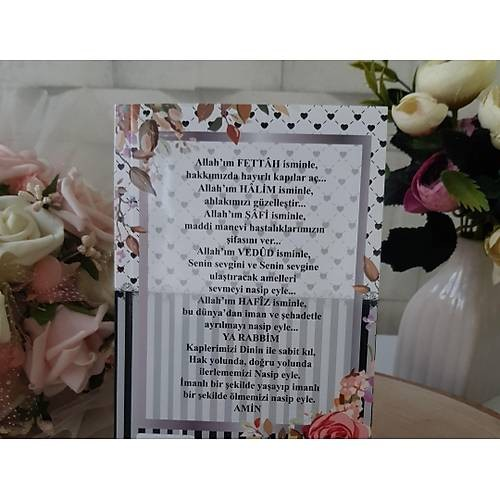 Allah'ım FETTÂH isminle,
hakkımızda hayırlı kapılar aç...
Allah'ım HÂLİM isminle,
ahlakımızı güzelleştir...
Allah'ım ŞÂFİ isminle,
maddi manevi hastalıklarımızın
şifasını ver...
Allah'ım VEDÛD isminle,
Senin sevgini ve Senin sevgine
ulaştıracak amelleri
sevmeyi nasip eyle...
Allah'ım HAFÎZ isminle,
bu dünya'dan iman ve şehadetle
ayrılmayı nasip eyle...
YA RABBİM
Kaplerimizi Dinin ile sabit kıl,
Hak yolunda, doğru yolunda
ilerlememizi Nasip eyle.
İmanlı bir şekilde yaşayıp imanlı
bir şekilde ölmemizi nasip eyle.
AMİN